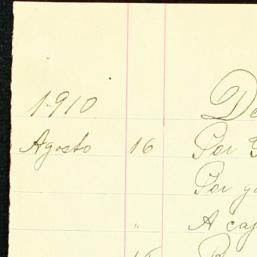 1910
De
Agosto 16 Por
Por
" A caj